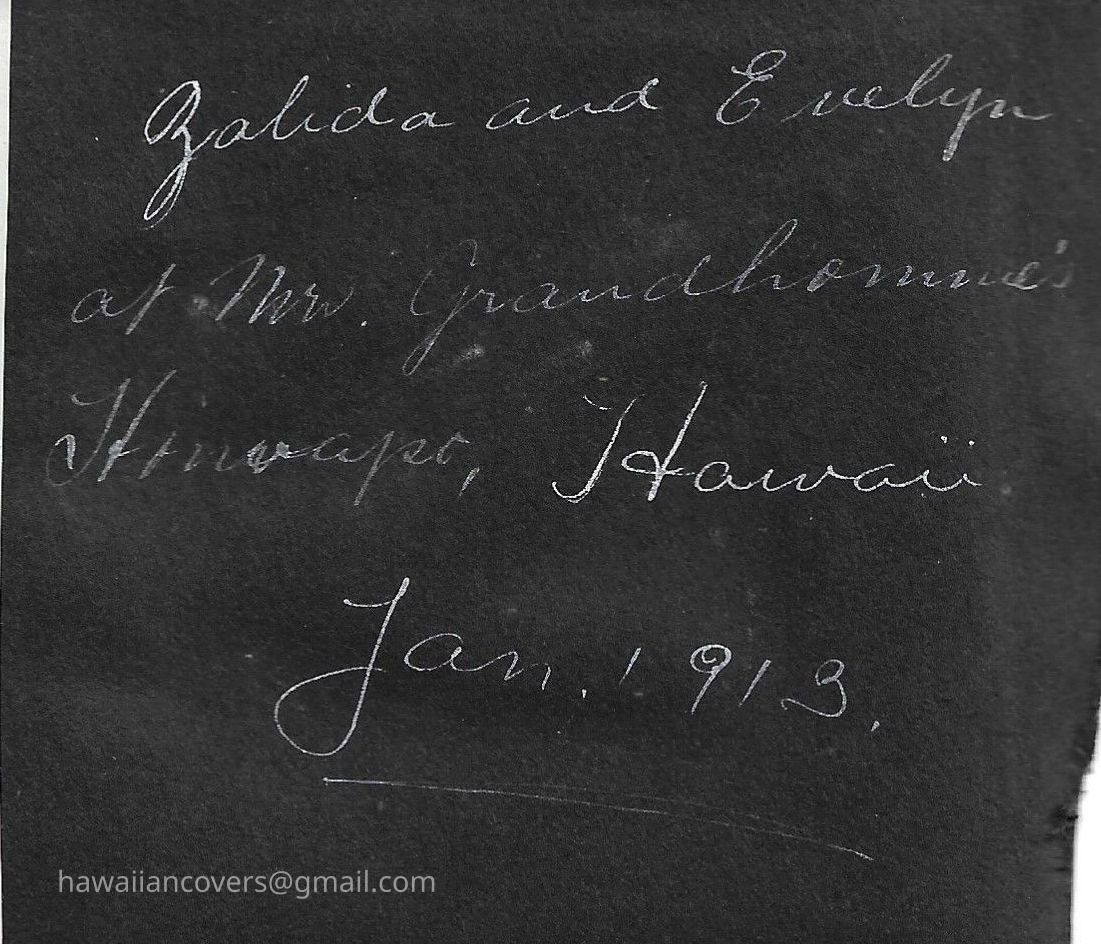 Zalida and Evelyn
at Mrs. Grandhomme's
Honuapo, Hawaii
Jan. 1913.
hawaiiancovers@gmail.com